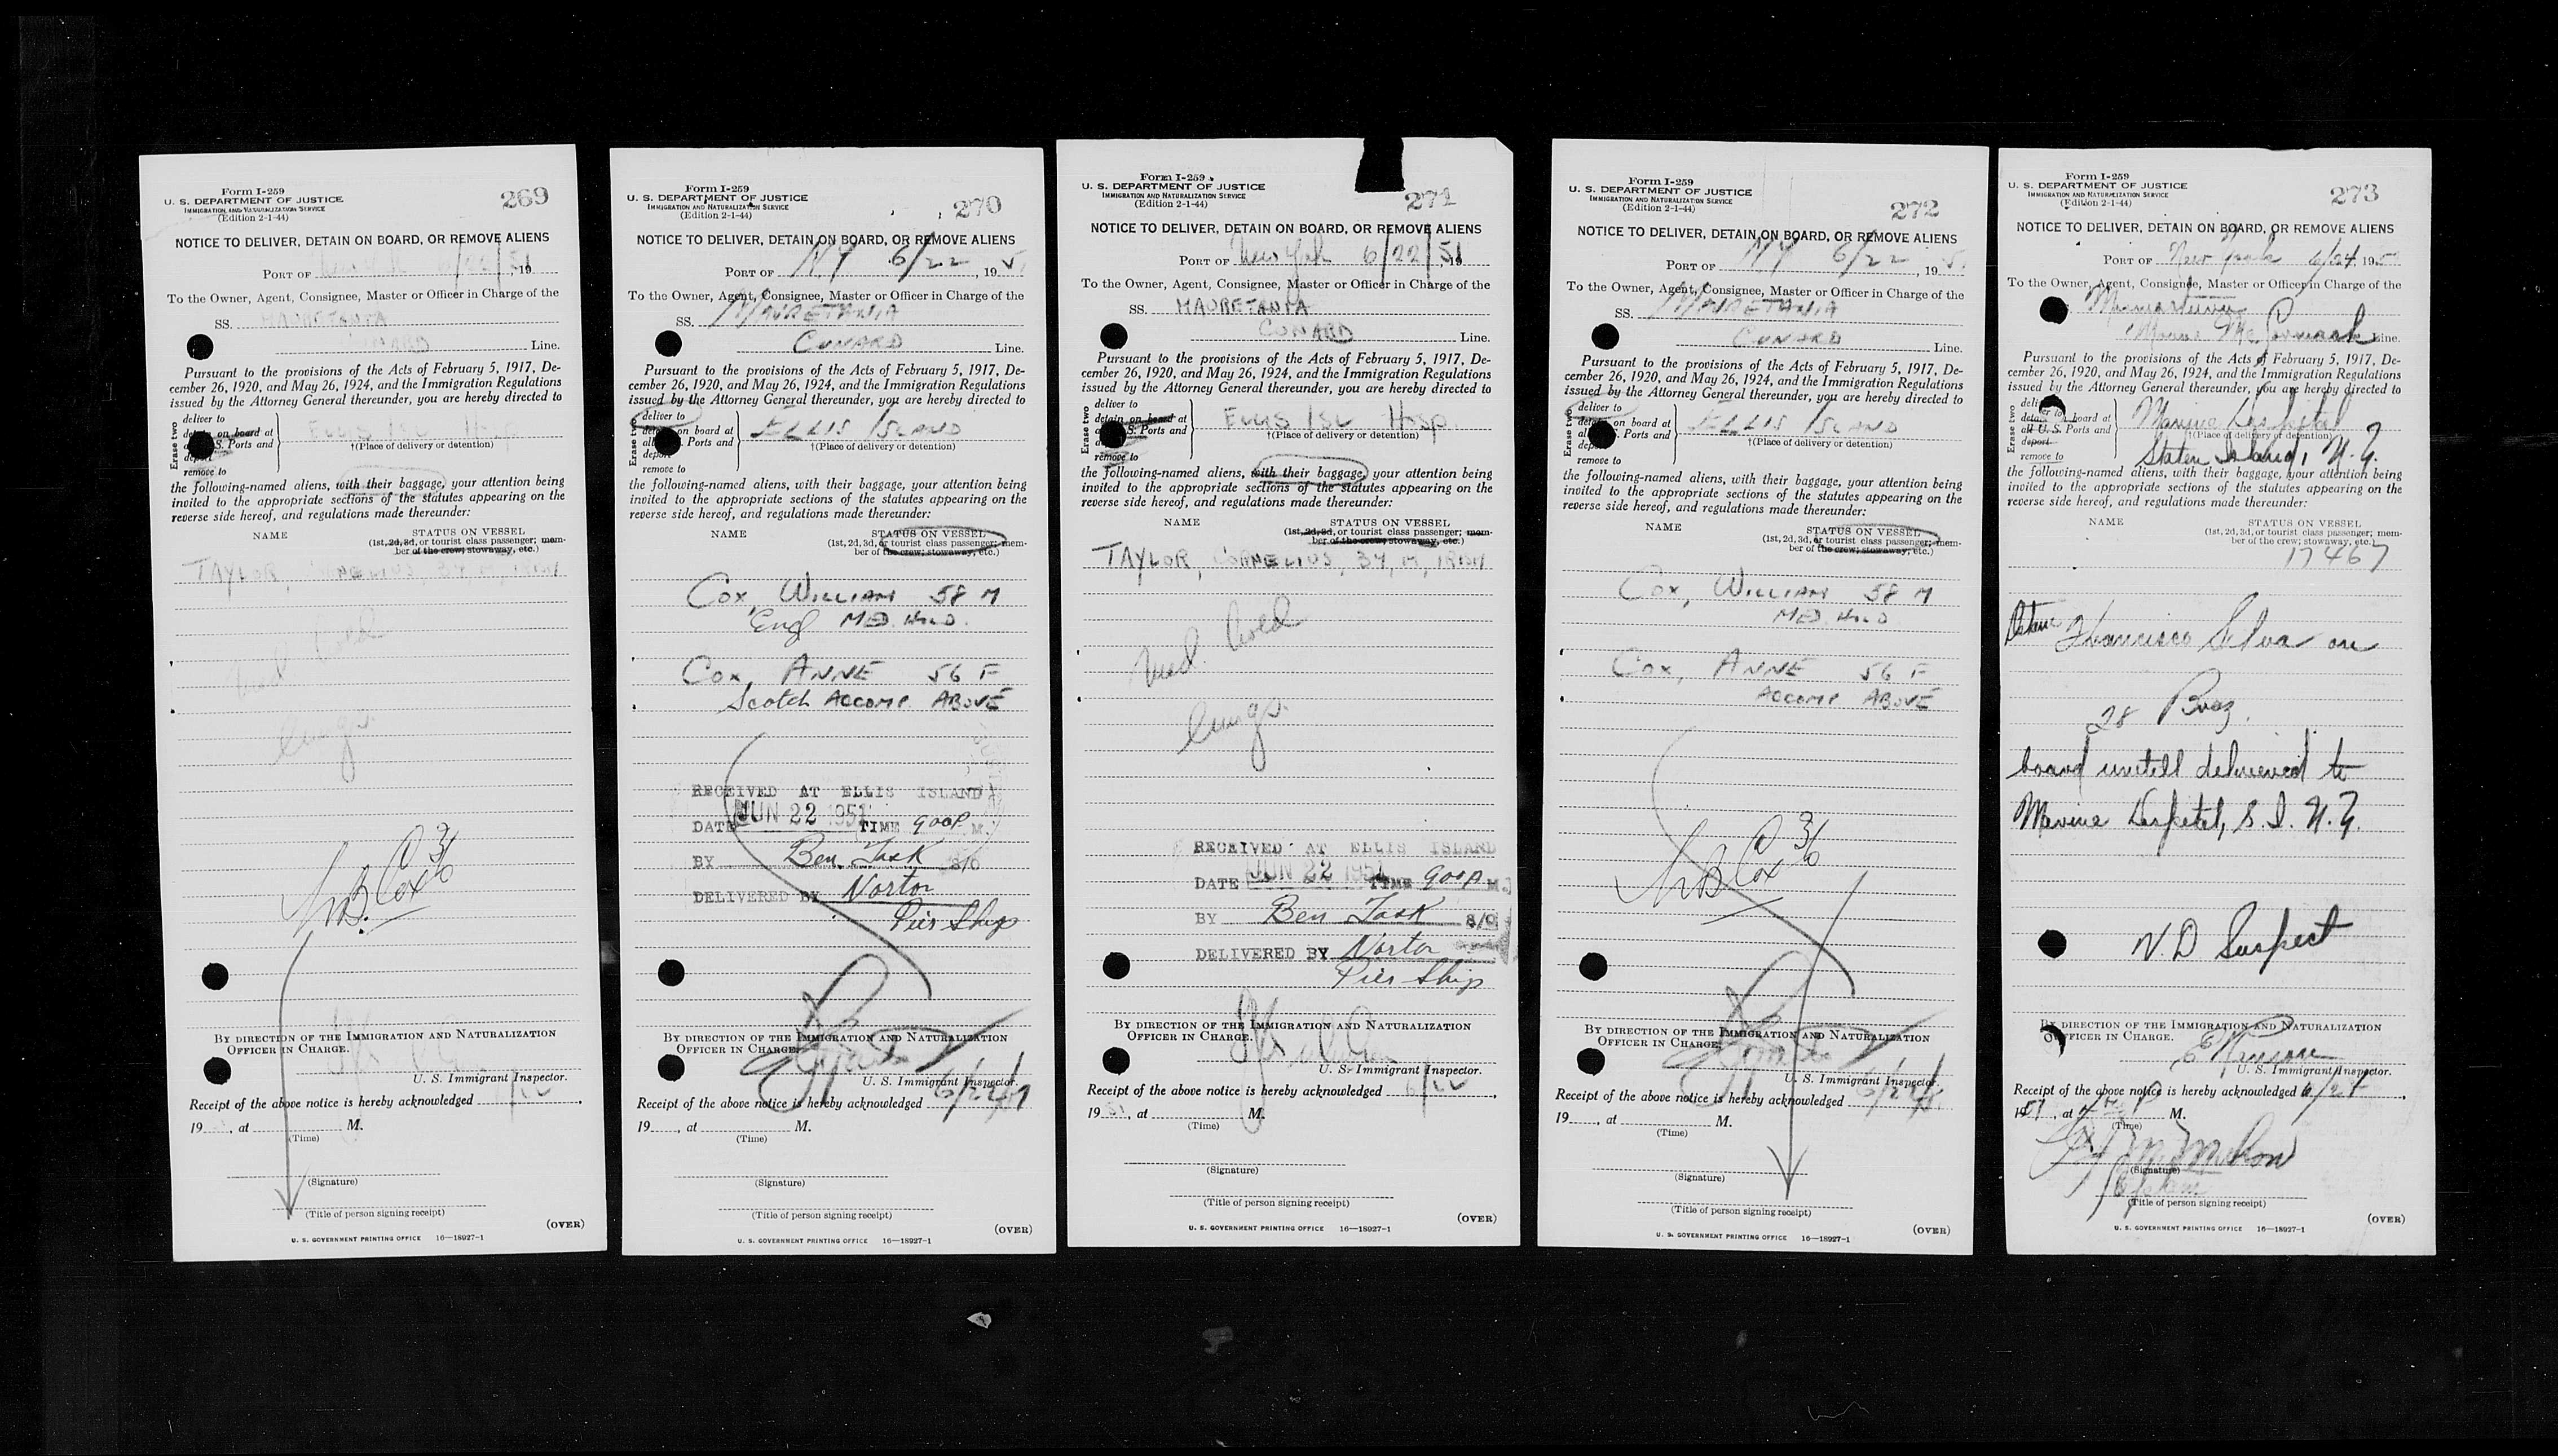 Form I-259
U. S. DEPARTMENT OF JUSTICE
IMMIGRATION AND NATURALIZATION SERVICE
(Edition 2-1-44)
269
NOTICE TO DELIVER, DETAIN ON BOARD, OR REMOVE ALIENS
PORT OF New York 6/22/51, 19
To the Owner, Agent, Consignee, Master or Officer in Charge of the
SS. MAURETANIA
CUNARD Line.
Pursuant to the provisions of the Acts of February 5, 1917, De-
cember 26, 1920, and May 26, 1924, and the Immigration Regulations
issued by the Attorney General thereunder, you are hereby directed to
Erase two
deliver to
on board at
S. Ports and
remove to
ELLIS ISL Hosp
the following-named aliens, with their baggage, your attention being
invited to the appropriate sections of the statutes appearing on the
reverse side hereof, and regulations made thereunder:
NAME
STATUS ON VESSEL
(1st, 2d, 3d, or tourist class passenger; mem-
ber of the crew; stowaway, etc.)
TAYLOR, CORNELIUS, 34, M, IRISH
Med Hold
lungs.
Cox
BY DIRECTION OF THE IMMIGRATION AND NATURALIZATION
OFFICER IN CHARGE.
U. S. Immigrant Inspector.
Receipt of the above notice is hereby acknowledged
19 , at M.
(Time)
(Signature)
(Title of person signing receipt)
(OVER)
U. S. GOVERNMENT PRINTING OFFICE 16—18927-1
Form I-259
U. S. DEPARTMENT OF JUSTICE
IMMIGRATION AND NATURALIZATION SERVICE
(Edition 2-1-44)
270
NOTICE TO DELIVER, DETAIN ON BOARD, OR REMOVE ALIENS
PORT OF NY 6/22, 19
To the Owner, Agent, Consignee, Master or Officer in Charge of the
SS. MAURETANIA
CUNARD Line.
Pursuant to the provisions of the Acts of February 5, 1917, De-
cember 26, 1920, and May 26, 1924, and the Immigration Regulations
issued by the Attorney General thereunder, you are hereby directed to
Erase two
deliver to
on board at
Ports and
remove to
ELLIS ISLAND
†(Place of delivery or detention)
the following-named aliens, with their baggage, your attention being
invited to the appropriate sections of the statutes appearing on the
reverse side hereof, and regulations made thereunder:
NAME
STATUS ON VESSEL
(1st, 2d, 3d, or tourist class passenger; mem-
ber of the crew; stowaway, etc.)
COX, WILLIAM 58 M
Engl MED. HOLD.
COX, ANNE 56 F
Scotch ACCOMP. ABOVE
RECEIVED AT ELLIS ISLAND
DATE JUN 22 1951 TIME 900P M.
BY Ben Task
DELIVERED BY Norton
Pier Ship
BY DIRECTION OF THE IMMIGRATION AND NATURALIZATION
OFFICER IN CHARGE.
U. S. Immigrant Inspector.
Receipt of the above notice is hereby acknowledged 6/22/51
19 , at M.
(Time)
(Signature)
(Title of person signing receipt)
(OVER)
U. S. GOVERNMENT PRINTING OFFICE 16—18927-1
Form I-259
U. S. DEPARTMENT OF JUSTICE
IMMIGRATION AND NATURALIZATION SERVICE
(Edition 2-1-44)
271
NOTICE TO DELIVER, DETAIN ON BOARD, OR REMOVE ALIENS
PORT OF New York 6/22/51, 19
To the Owner, Agent, Consignee, Master or Officer in Charge of the
SS. MAURETANIA
CUNARD Line.
Pursuant to the provisions of the Acts of February 5, 1917, De-
cember 26, 1920, and May 26, 1924, and the Immigration Regulations
issued by the Attorney General thereunder, you are hereby directed to
Erase two
deliver to
detain on board at
S. Ports and
remove to
ELLIS ISL Hosp.
†(Place of delivery or detention)
the following-named aliens, with their baggage, your attention being
invited to the appropriate sections of the statutes appearing on the
reverse side hereof, and regulations made thereunder:
NAME
STATUS ON VESSEL
(1st, 2d, 3d, or tourist class passenger; mem-
ber of the crew; stowaway, etc.)
TAYLOR, CORNELIUS, 34, M, IRISH
Med. Hold
lungs.
RECEIVED AT ELLIS ISLAND
DATE JUN 22 1951 TIME 900P M.
BY Ben Task
DELIVERED BY Norton
Pier Ship
BY DIRECTION OF THE IMMIGRATION AND NATURALIZATION
OFFICER IN CHARGE.
U. S. Immigrant Inspector.
Receipt of the above notice is hereby acknowledged 6/22
19 51, at M.
(Time)
(Signature)
(Title of person signing receipt)
(OVER)
U. S. GOVERNMENT PRINTING OFFICE 16—18927-1
Form I-259
U. S. DEPARTMENT OF JUSTICE
IMMIGRATION AND NATURALIZATION SERVICE
(Edition 2-1-44)
272
NOTICE TO DELIVER, DETAIN ON BOARD, OR REMOVE ALIENS
PORT OF NY 6/22, 19
To the Owner, Agent, Consignee, Master or Officer in Charge of the
SS. MAURETANIA
CUNARD Line.
Pursuant to the provisions of the Acts of February 5, 1917, De-
cember 26, 1920, and May 26, 1924, and the Immigration Regulations
issued by the Attorney General thereunder, you are hereby directed to
Erase two
deliver to
on board at
Ports and
remove to
ELLIS ISLAND
†(Place of delivery or detention)
the following-named aliens, with their baggage, your attention being
invited to the appropriate sections of the statutes appearing on the
reverse side hereof, and regulations made thereunder:
NAME
STATUS ON VESSEL
(1st, 2d, 3d, or tourist class passenger; mem-
ber of the crew; stowaway, etc.)
COX, WILLIAM 58 M
MED. HOLD
COX, ANNE 56 F
ACCOMP ABOVE
Cox
BY DIRECTION OF THE IMMIGRATION AND NATURALIZATION
OFFICER IN CHARGE.
U. S. Immigrant Inspector.
Receipt of the above notice is hereby acknowledged 6/22/51
19 , at M.
(Time)
(Signature)
(Title of person signing receipt)
(OVER)
U. S. GOVERNMENT PRINTING OFFICE 16—18927-1
Form I-259
U. S. DEPARTMENT OF JUSTICE
IMMIGRATION AND NATURALIZATION SERVICE
(Edition 2-1-44)
273
NOTICE TO DELIVER, DETAIN ON BOARD, OR REMOVE ALIENS
PORT OF New York 6/24, 195
To the Owner, Agent, Consignee, Master or Officer in Charge of the
Mc Cormack Line.
Pursuant to the provisions of the Acts of February 5, 1917, De-
cember 26, 1920, and May 26, 1924, and the Immigration Regulations
issued by the Attorney General thereunder, you are hereby directed to
Erase two
board at
all U. S. Ports and
deport
remove to
Marine Hospital
†(Place of delivery or detention)
Staten Island, N. Y.
the following-named aliens, with their baggage, your attention being
invited to the appropriate sections of the statutes appearing on the
reverse side hereof, and regulations made thereunder:
NAME
STATUS ON VESSEL
(1st, 2d, 3d, or tourist class passenger; mem-
ber of the crew; stowaway, etc.)
17467
Detain Francisco Silva on
28 Braz.
board untill delivered to
Marine Hospital, S. I. N. Y.
V. D Suspect
BY DIRECTION OF THE IMMIGRATION AND NATURALIZATION
OFFICER IN CHARGE.
U. S. Immigrant Inspector.
Receipt of the above notice is hereby acknowledged 6/24
1951, at M.
(Time)
(Signature)
(Title of person signing receipt)
(OVER)
U. S. GOVERNMENT PRINTING OFFICE 16—18927-1